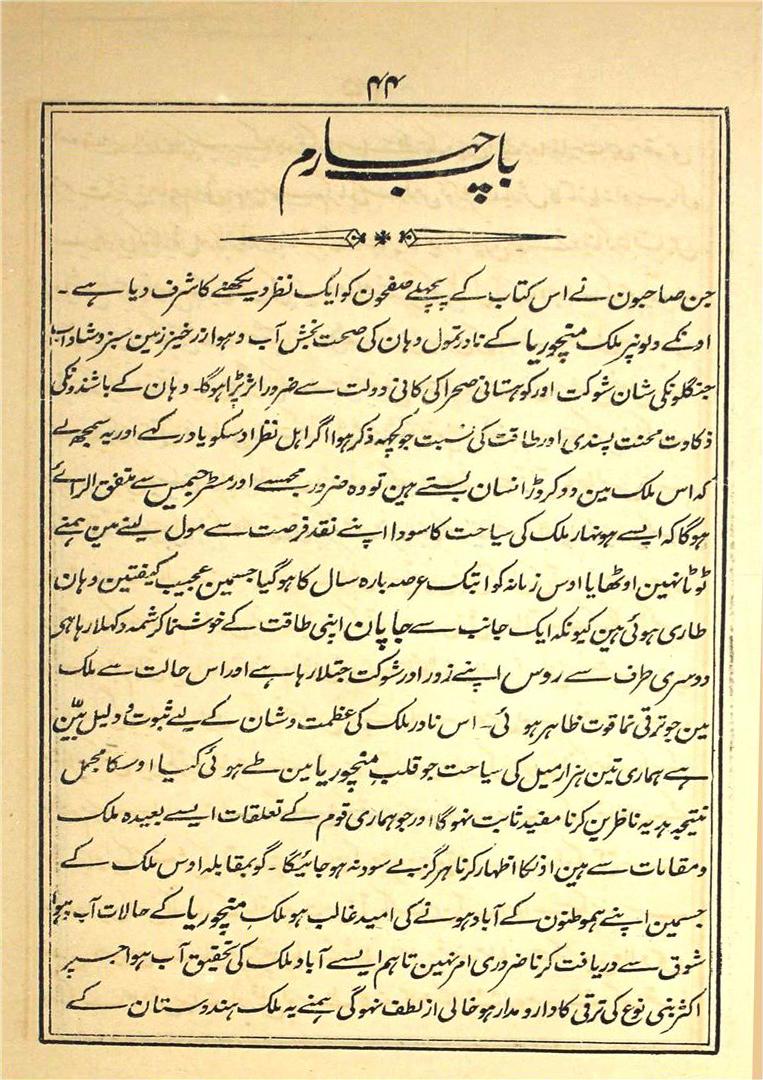 ۴۴
باب چہارم
جن صاحبون نے اس کتاب کے پچھلے صفحون کو ایک نظر دیکھنے کا شرف دیا ہے ۔
اونکے دلونپر ملک منچوریا کے نادر تمول وہان کی صحت بخش آب و ہوا زرخیز زمین سبز و شاداب
جنگلونکی شان شوکت اور کوہستانی صحرا کی کانی دولت سے ضرور اثر پڑا ہوگا۔ وہان کے باشندونکی
ذکاوت محنت پسندی اور طاقت کی نسبت جو کچھہ ذکر ہوا اگر اہل نظر اوسکو یاد رکہے اور یہ سمجھ لے
کہ اس ملک مین دو کروڑ انسان بستے ہین تو وہ ضرور مجھسے اور مسٹر جیمس سے متفق الرائے
ہوگا کہ ایسے ہونہار ملک کی سیاحت کا سودا اپنے نقد فرصت سے مول لینے مین ہمنے
ٹوٹا نہین اوٹھایا اوس زمانہ کو ابتک عرصہ بارہ سال کا ہوگیا جسمین عجیب کیفتین وہان
طاری ہوئی ہین کیونکہ ایک جانب سے جاپان اپنی طاقت کے خوشنما کرشمہ دکہلا رہا ہی
دوسری طرف سے روس اپنے زور اور شوکت جتلا رہا ہے اور اس حالت سے ملک
مین جو ترقی نما قوت ظاہر ہوئی۔ اس نادر ملک کی عظمت و شان کے لیے ثبوت و دلیل بیّن
ہے ہماری تین ہزار میل کی سیاحت جو قلب منچوریا مین طے ہوئی کیا اوسکا مجمل
نتیجہ ہدیہ ناظرین کرنا مفید ثابت نہوگا اور جو ہماری قوم کے تعلقات ایسے بعیدہ ملک
و مقامات سے ہین اونکا اظہار کرنا ہرگز بے سود نہ ہو جائیگا ۔ گو بمقابلہ اوس ملک کے
جسمین اپنے ہموطنون کے آباد ہونے کی امید غالب ہو ملک منچوریا کے حالات آب ہوا
شوق سے دریافت کرنا ضروری امر نہین تاہم ایسے آباد ملک کی تحقیق آب ہوا جسپر
اکثر بنی نوع کی ترقی کا دار و مدار ہو خالی از لطف نہوگی ہمنے یہ ملک ہندوستان کے